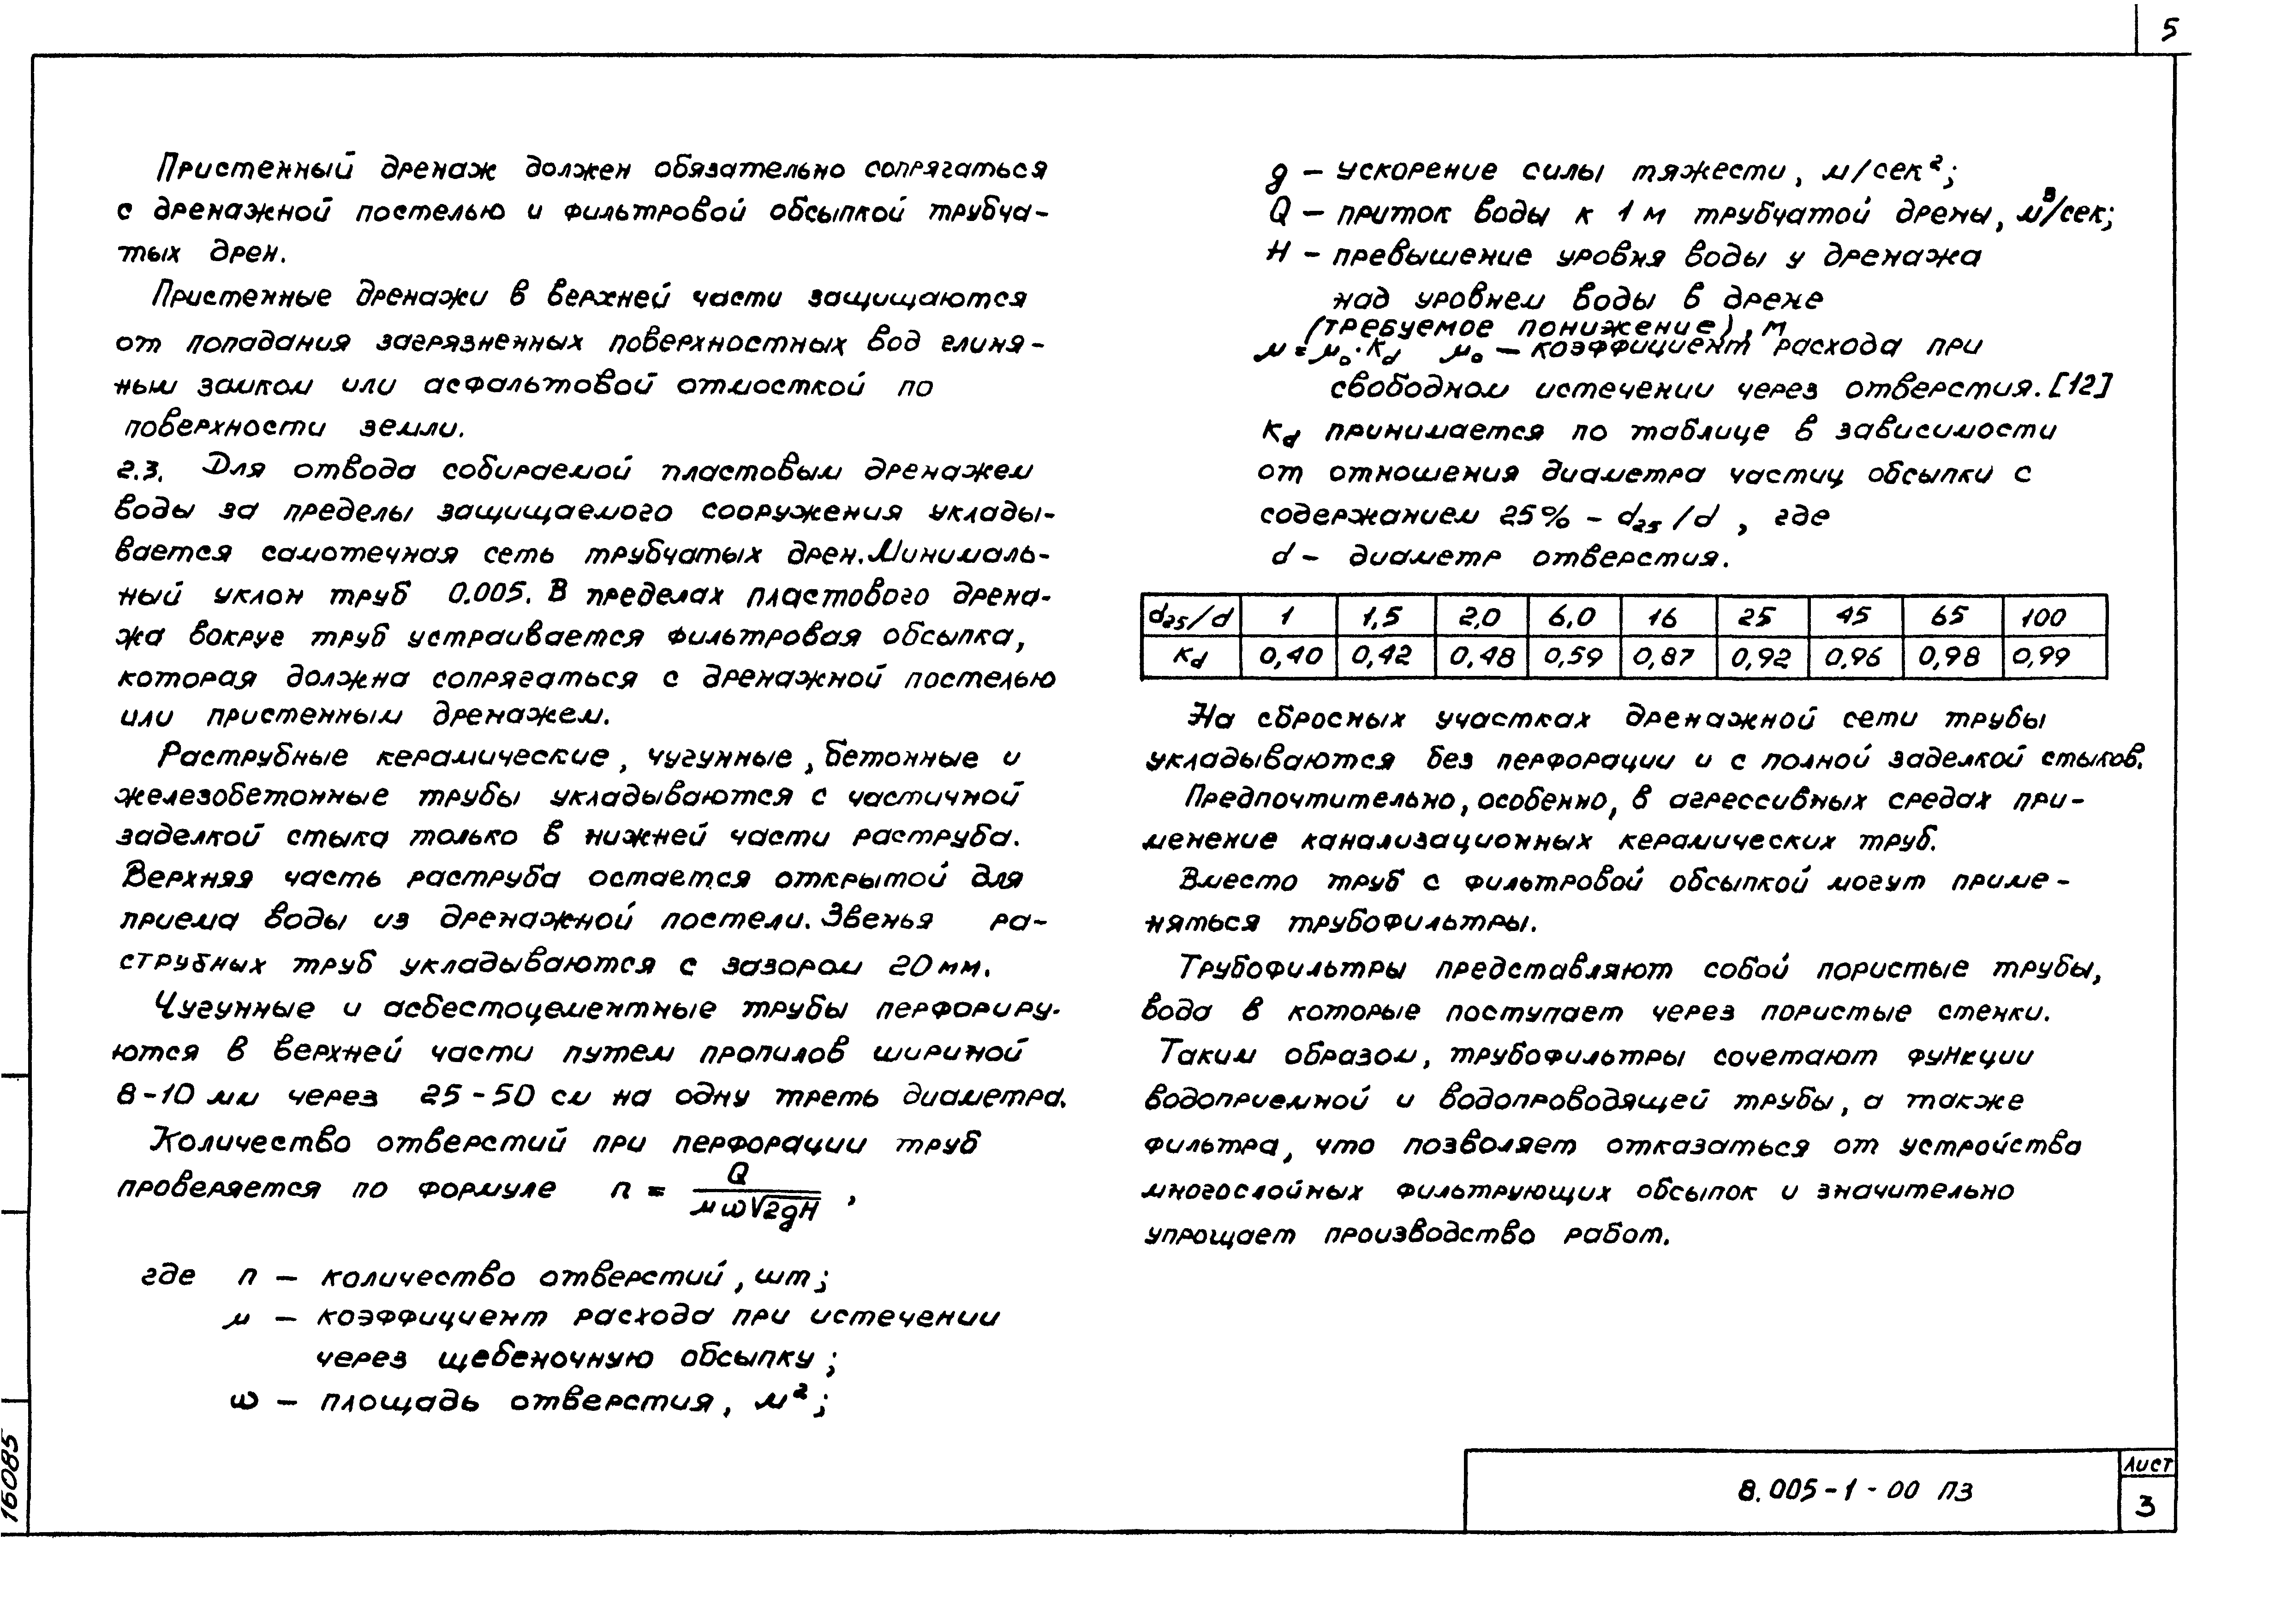 5
Пристенный дренаж должен обязательно сопрягаться
с дренажной постелью и фильтровой обсыпкой трубча-
тых дрен.
Пристенные дренажи в верхней части защищаются
от попадания загрязненных поверхностных вод глиня-
ным замком или асфальтовой отмосткой по
поверхности земли.
2.3. Для отвода собираемой пластовым дренажем
воды за пределы защищаемого сооружения уклады-
вается самотечная сеть трубчатых дрен. Минималь-
ный уклон труб 0.005. В пределах пластового дрена-
жа вокруг труб устраивается фильтровая обсыпка,
которая должна сопрягаться с дренажной постелью
или пристенным дренажем.
Раструбные керамические, чугунные, бетонные и
железобетонные трубы укладываются с частичной
заделкой стыка только в нижней части раструба.
Верхняя часть раструба остается открытой для
приема воды из дренажной постели. Звенья ра-
струбных труб укладываются с зазором 20 мм.
Чугунные и асбестоцементные трубы перфориру-
ются в верхней части путем пропилов шириной
8-10 мм через 25-50 см на одну треть диаметра.
Количество отверстий при перфорации труб
проверяется по формуле n = Q / μω√2gH ,
где n – количество отверстий, шт;
μ – коэффициент расхода при истечении
через щебеночную обсыпку;
ω – площадь отверстия, м²;
g – ускорение силы тяжести, м/сек²;
Q – приток воды к 1 м трубчатой дрены, м³/сек;
H – превышение уровня воды у дренажа
над уровнем воды в дрене
(требуемое понижение), м
μ = μ₀·Kd μ₀ – коэффициент расхода при
свободном истечении через отверстия. [12]
Kd принимается по таблице в зависимости
от отношения диаметра частиц обсыпки с
содержанием 25% – d₂₅/d , где
d – диаметр отверстия.
d₂₅/d 1 1,5 2,0 6,0 16 25 45 65 100
Kd 0,40 0,42 0,48 0,59 0,87 0,92 0,96 0,98 0,99
На сбросных участках дренажной сети трубы
укладываются без перфорации и с полной заделкой стыков.
Предпочтительно, особенно, в агрессивных средах при-
менение канализационных керамических труб.
Вместо труб с фильтровой обсыпкой могут приме-
няться трубофильтры.
Трубофильтры представляют собой пористые трубы,
вода в которые поступает через пористые стенки.
Таким образом, трубофильтры сочетают функции
водоприемной и водопроводящей трубы, а также
фильтра, что позволяет отказаться от устройства
многослойных фильтрующих обсыпок и значительно
упрощает производство работ.
16085
8.005-1-00 ПЗ
Лист
3